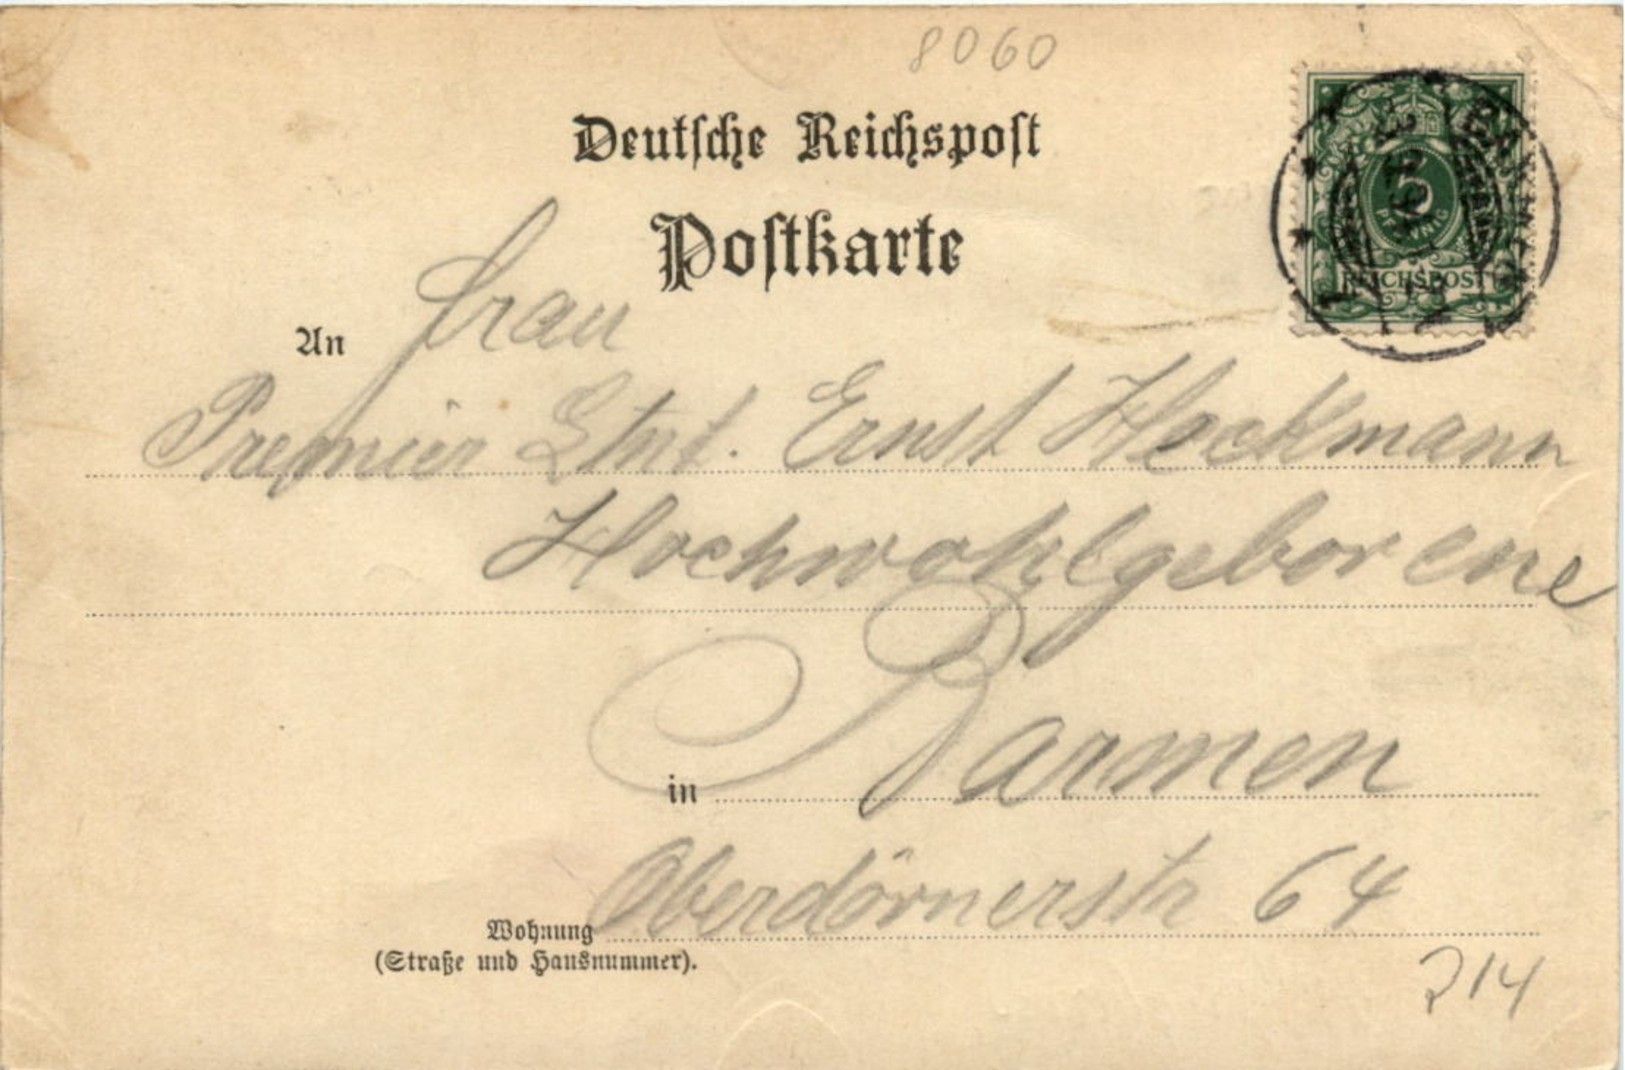 8060
Deutsche Reichspost
Postkarte
5
PFENNIG
REICHSPOST
BARMEN
An Frau
Premier Ltnt. Ernst Heckmann
Hochwohlgeborene
in Barmen
Wohnung Oberdörnerstr 64
(Straße und Hausnummer).
214